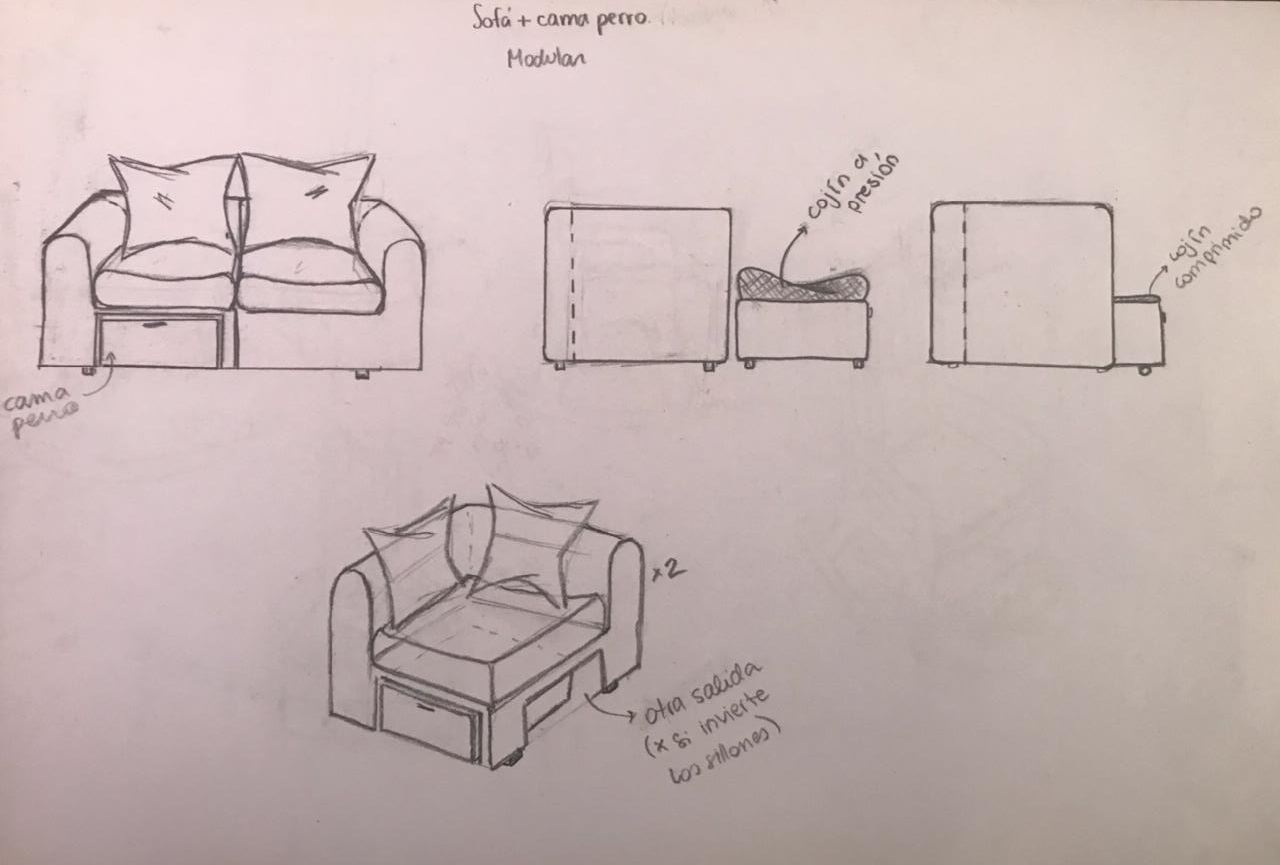 Sofá + cama perro.
Modular
cojín a
presión
cojín
comprimido
cama
perro
x2
otra salida
(x si invierte
los sillones)